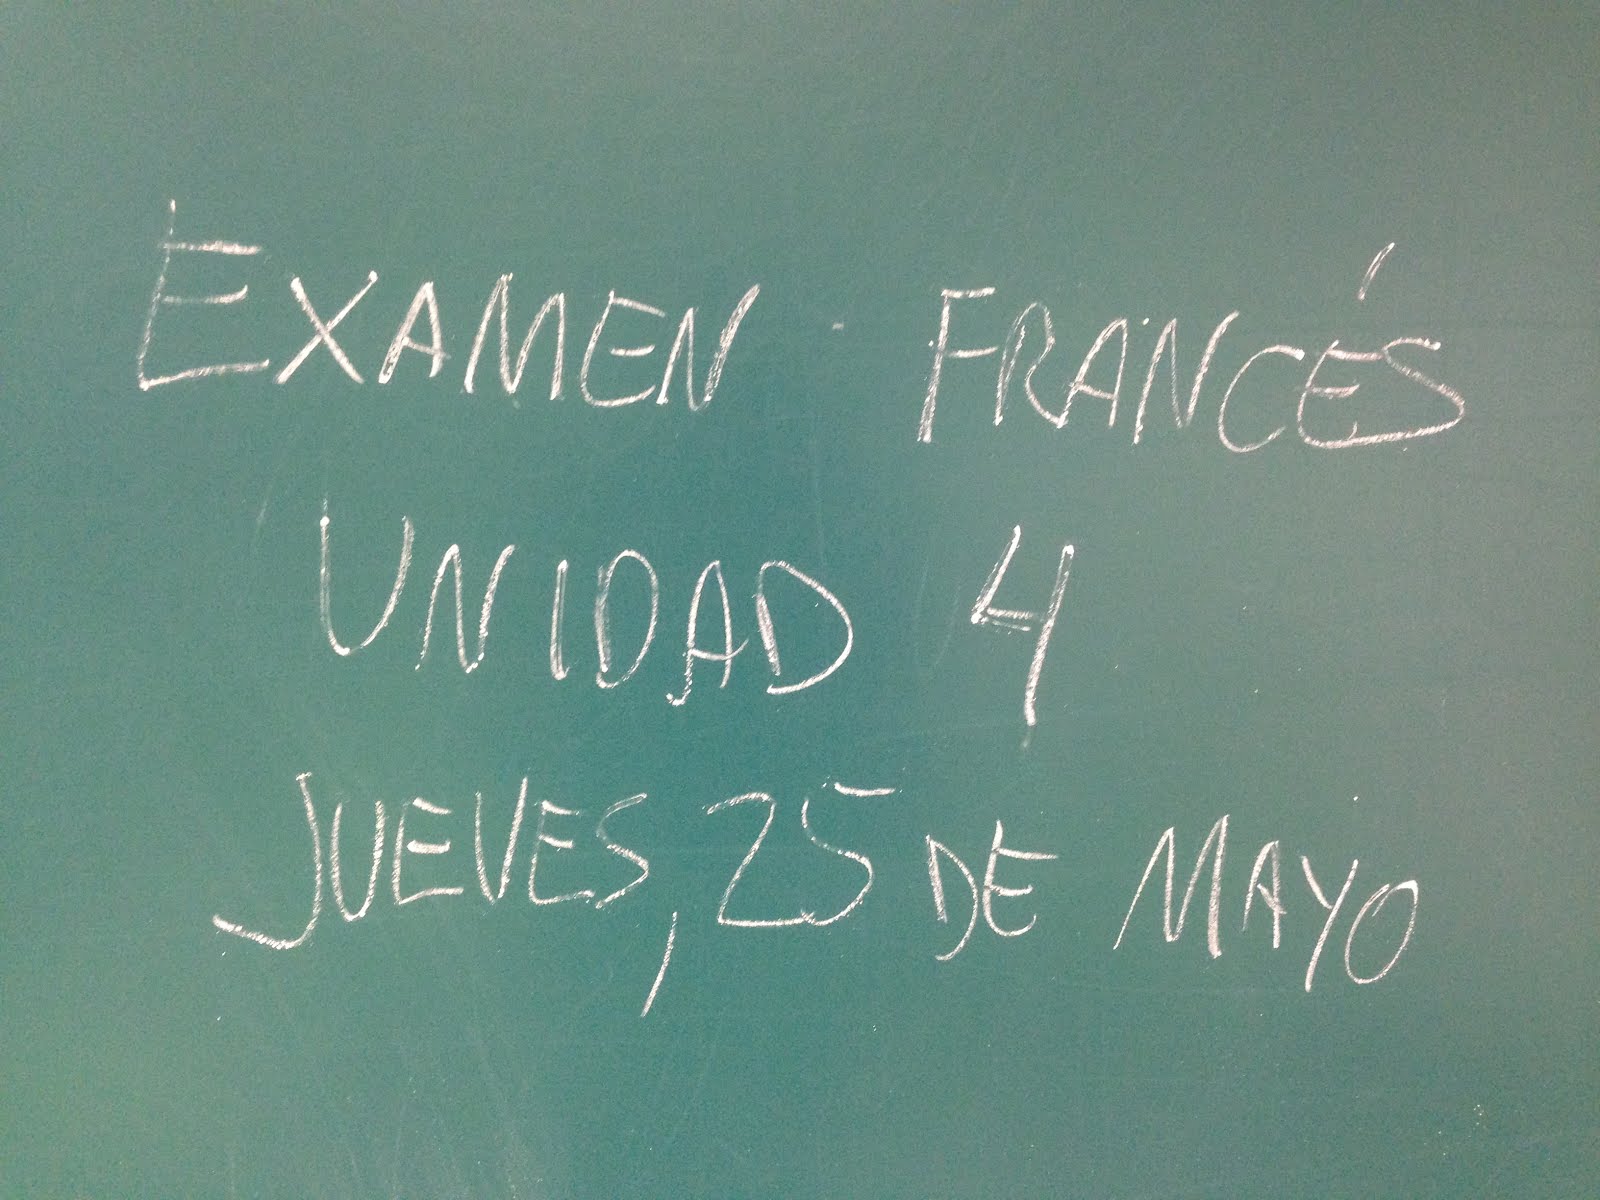 EXAMEN FRANCÉS
UNIDAD 4
JUEVES, 25 DE MAYO